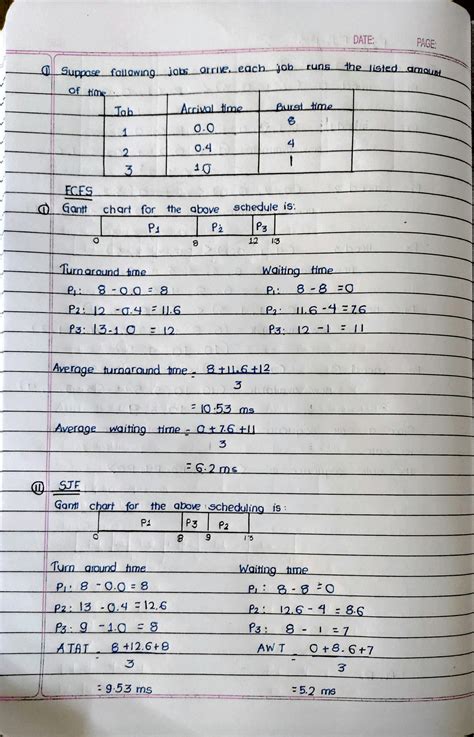 DATE: PAGE:
① Suppose following jobs arrive, each job runs the listed amount
of time.
Job Arrival time Burst time
1 0.0 8
2 0.4 4
3 10 1
FCFS
① Gantt chart for the above schedule is:
P1 P2 P3
0 8 12 13
Turnaround time Waiting time
P1: 8 - 0.0 = 8 P1: 8 - 8 = 0
P2: 12 - 0.4 = 11.6 P2: 11.6 - 4 = 7.6
P3: 13 - 1.0 = 12 P3: 12 - 1 = 11
Average turnaround time = 8 + 11.6 + 12
3
= 10.53 ms
Average waiting time = 0 + 7.6 + 11
3
= 6.2 ms
⑪ SJF
Gantt chart for the above scheduling is:
P1 P3 P2
0 8 9 13
Turn around time Waiting time
P1: 8 - 0.0 = 8 P1: 8 - 8 = 0
P2: 13 - 0.4 = 12.6 P2: 12.6 - 4 = 8.6
P3: 9 - 1.0 = 8 P3: 8 - 1 = 7
ATAT = 8 + 12.6 + 8 AWT = 0 + 8.6 + 7
3 3
= 9.53 ms = 5.2 ms